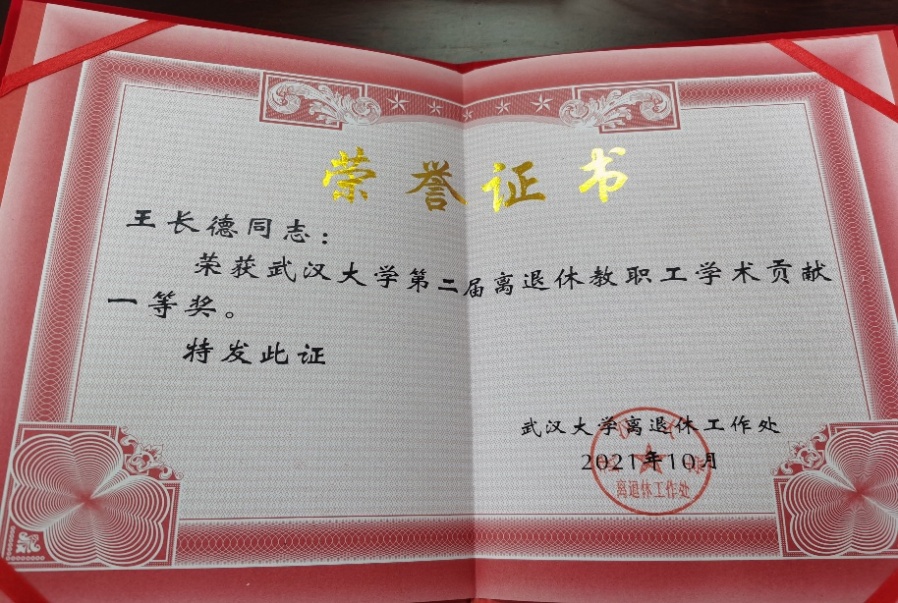 荣誉证书
王长德同志：
荣获武汉大学第二届离退休教职工学术贡献
一等奖。
特发此证
武汉大学离退休工作处
2021年10月
离退休工作处